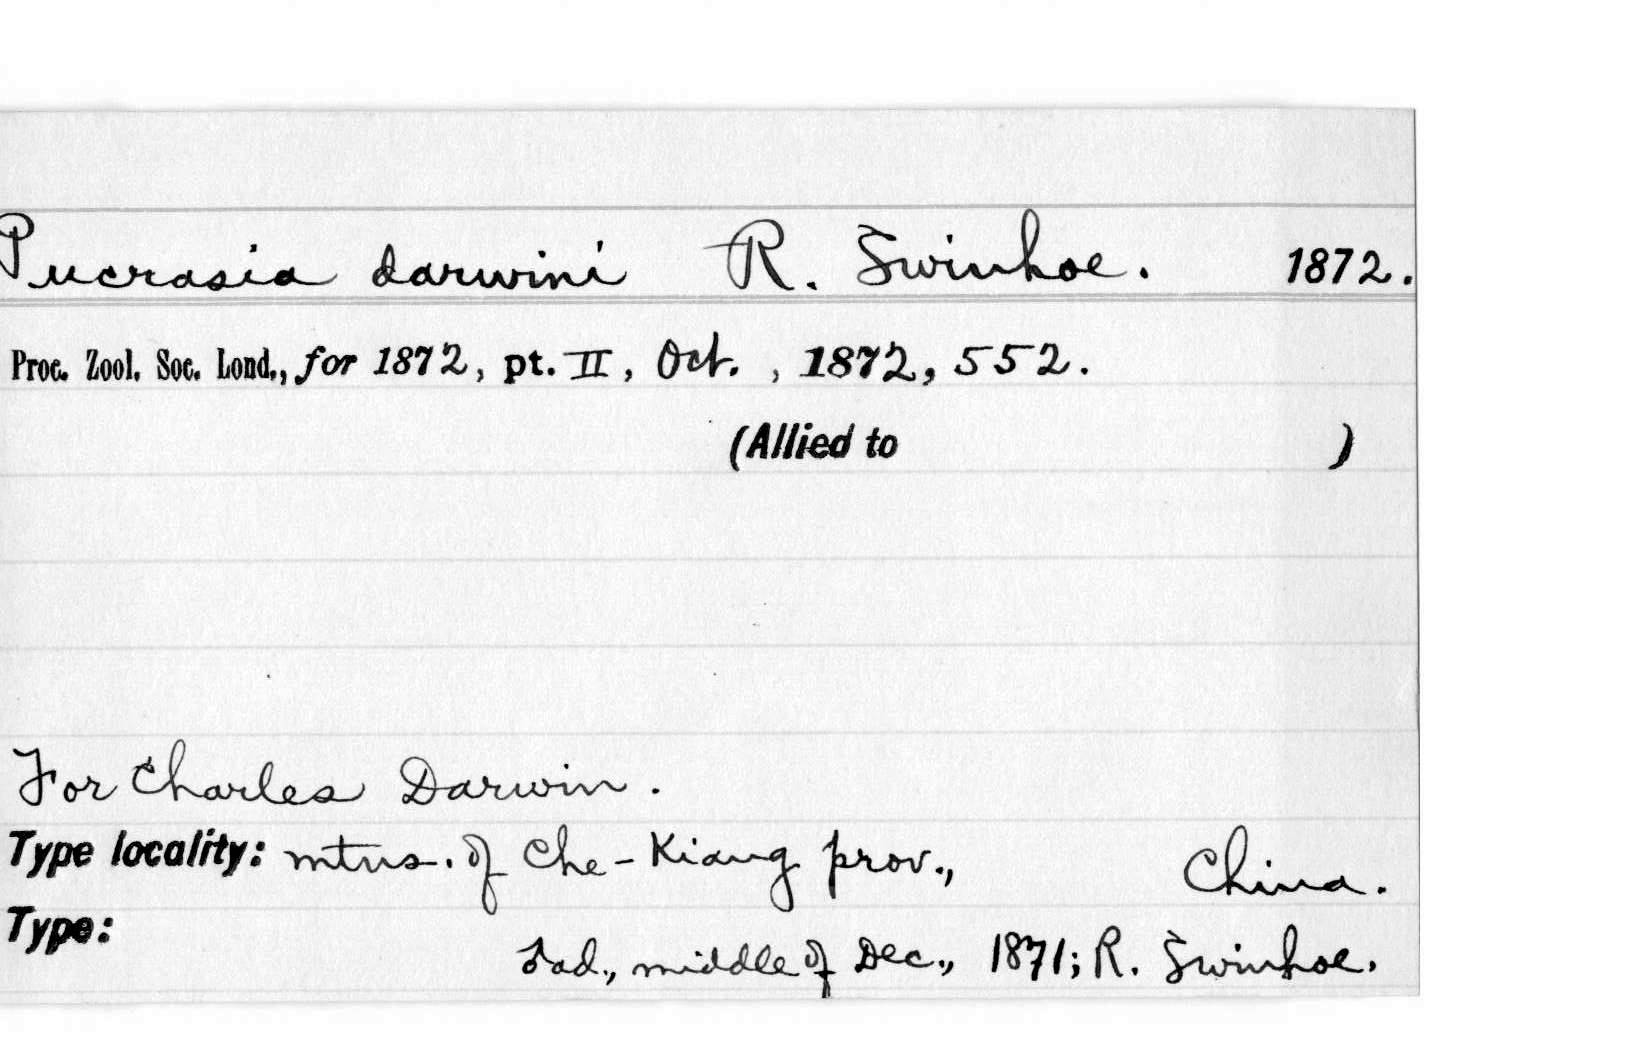 Pucrasia darwini R. Swinhoe. 1872.
Proc. Zool. Soc. Lond., for 1872, pt. II, Oct. , 1872, 552.
(Allied to )
For Charles Darwin.
Type locality: mtns. of Che-Kiang prov., China.
Type:
♂ad., middle of Dec., 1871; R. Swinhoe.